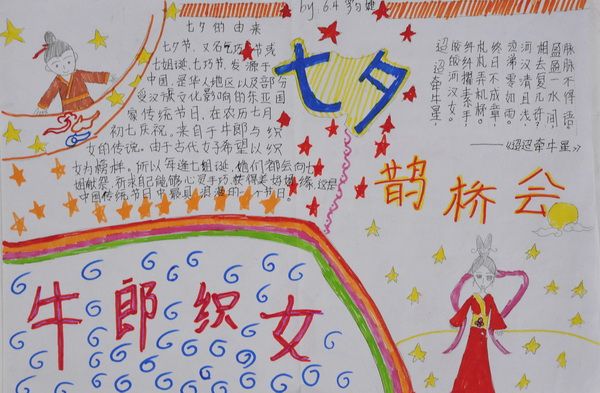 by.64
七夕的由来
七夕节,又名乞巧节或
七姐诞,七巧节,发源于
中国,是华人地区以及部分
受汉族文化影响的东亚国
家传统节日,在农历七月
初七庆祝,来自于牛郎与织
女的传说,由于古代女子希望以织
女为榜样,所以每逢七姐诞,她们都会向七
姐献祭,祈求自己能够心灵手巧,获得美好姻缘,这是
中国传统节日中最具浪漫的一个节日。
七夕
迢迢牵牛星,
皎皎河汉女。
纤纤擢素手,
札札弄机杼。
终日不成章,
泣涕零如雨;
河汉清且浅,
相去复几许?
盈盈一水间,
脉脉不得语
——《迢迢牵牛星》
鹊桥会
牛郎织女